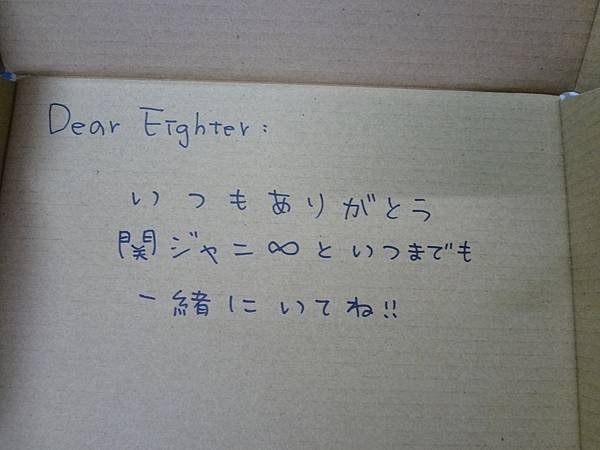 Dear Eighter:
いつもありがとう
関ジャニ∞といつまでも
一緒にいてね!!